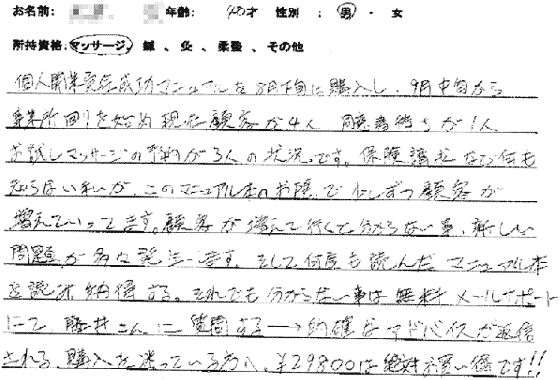 お名前: 年齢: 40才 性別 : 男 ・ 女
所持資格:マッサージ、鍼 、灸 、柔整 、その他
個人開業完全成功マニュアルを8月下旬に購入し、9月中旬から
事業所回りを始め現在顧客が4人 同意書待ちが1人
お試しマッサージの予約が3人の状況です。保険請求など何も
知らない私が、このマニュアル本のお陰で少しずつ顧客が
増えていってます。顧客が増えて行くと分からない事、新しい
問題が多々発生します。そして何度も読んだマニュアル本
を読み納得する。それでも分からない事は無料メールサポート
にて藤井さんに質問する→的確なアドバイスが返信
される。購入を迷っている方へ、¥29800は絶対お買い得です!!